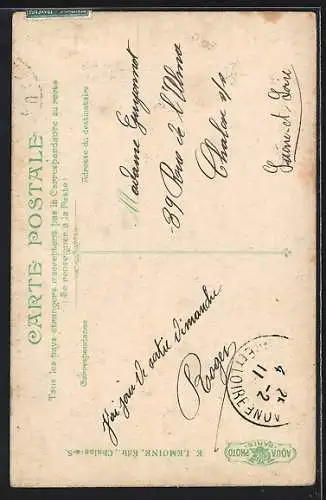 CARTE POSTALE
Tous les pays étrangers n'acceptent pas la Correspondance au recto
(Se renseigner à la Poste)
Correspondance
Adresse du destinataire
J'ai jour de sortie dimanche
Roger
Madame Guyonnot
39 Rue de l'Alma
Chalon s/s
Saône-et-Loire
4 25
11 -2
E. LEMOINE, Edit., Chalon-s-S.
AQUA PHOTO
PARIS